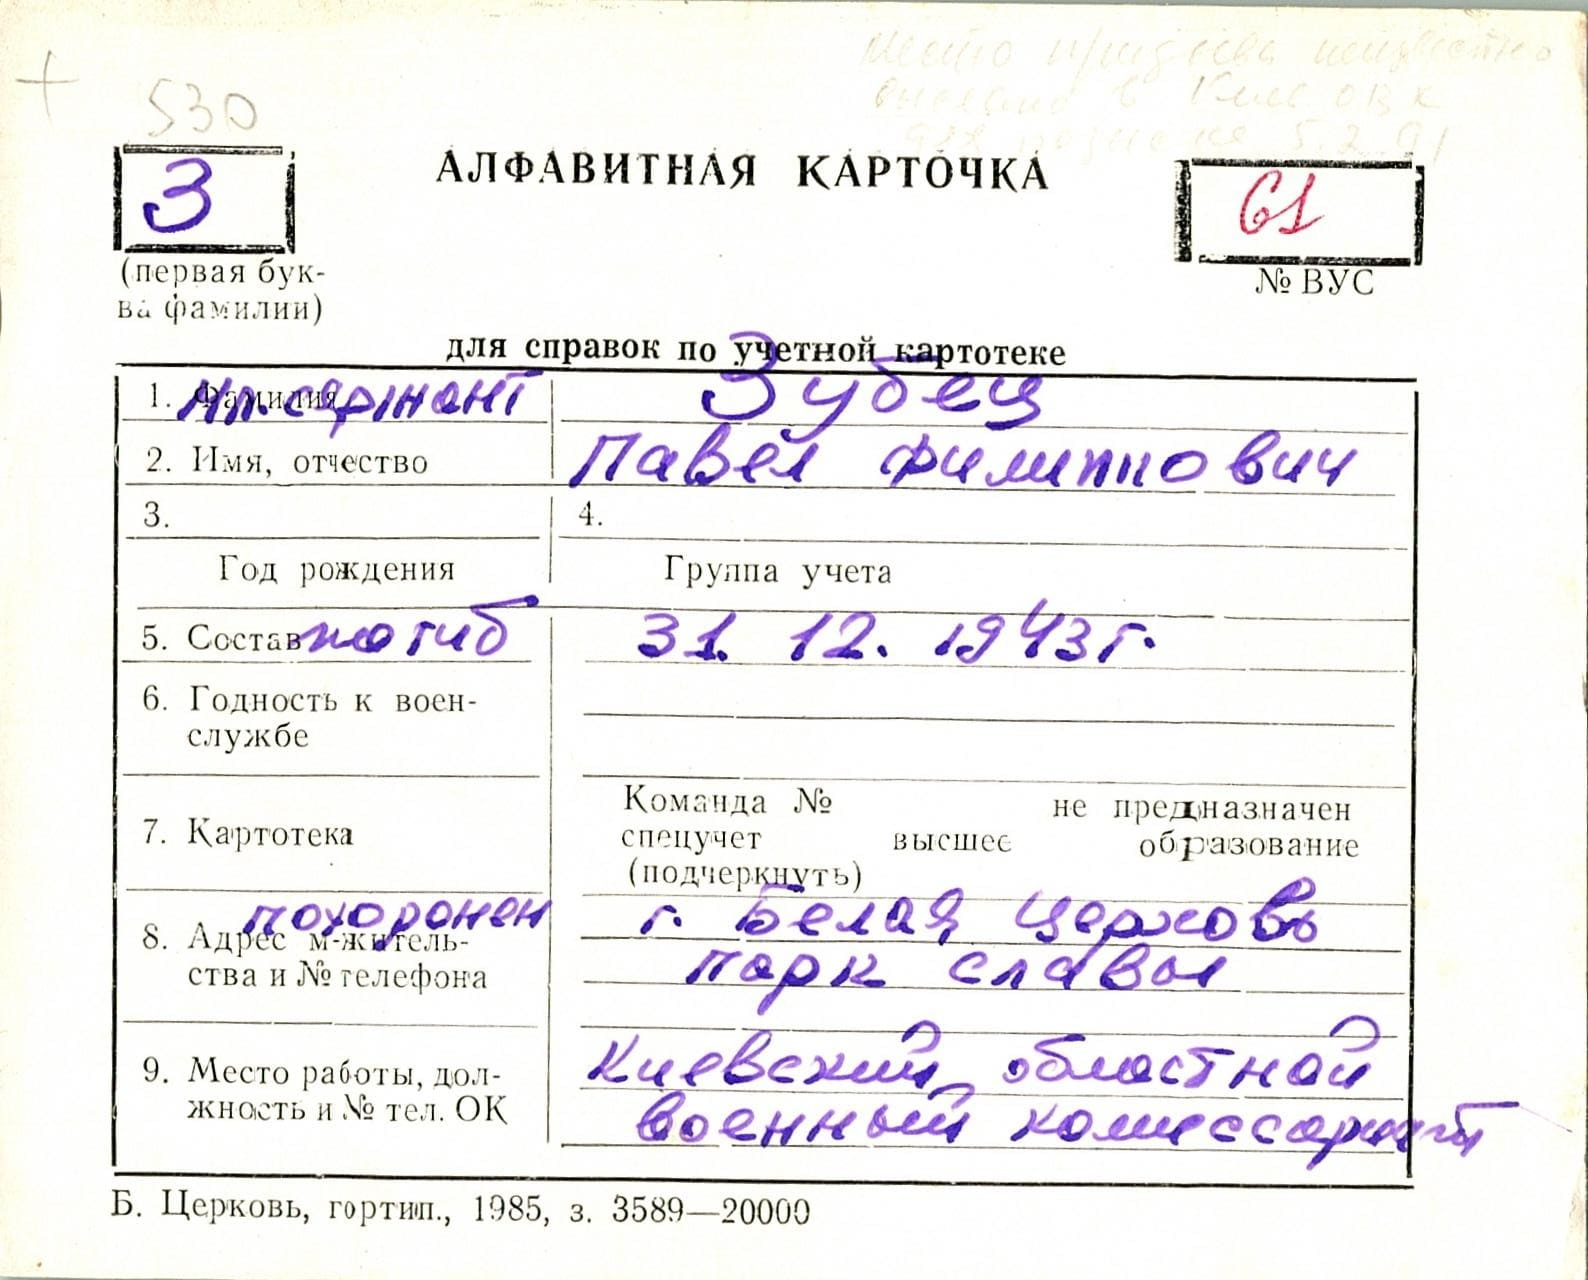 Место призыва неизвестно
в
5.2.91
530
З
АЛФАВИТНАЯ КАРТОЧКА
61
(первая бук-
ва фамилии)
№ ВУС
для справок по учетной картотеке
1. Фамилия мл. сержант Зубец
2. Имя, отчество Павел Филиппович
3. 4.
Год рождения Группа учета
5. Состав погиб 31. 12. 1943 г.
6. Годность к воен-
службе
7. Картотека
Команда № не предназначен
спецучет высшее образование
(подчеркнуть)
похоронен г. Белая Церковь
8. Адрес м-житель-
ства и № телефона парк славы
9. Место работы, дол- Киевский областной
жность и № тел. ОК военный комиссариат
Б. Церковь, гортип., 1985, з. 3589—20000